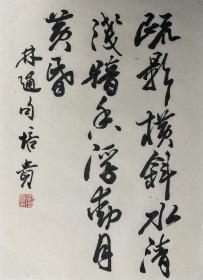 疏影横斜水清
浅暗香浮动月
黄昏
林逋句培贵